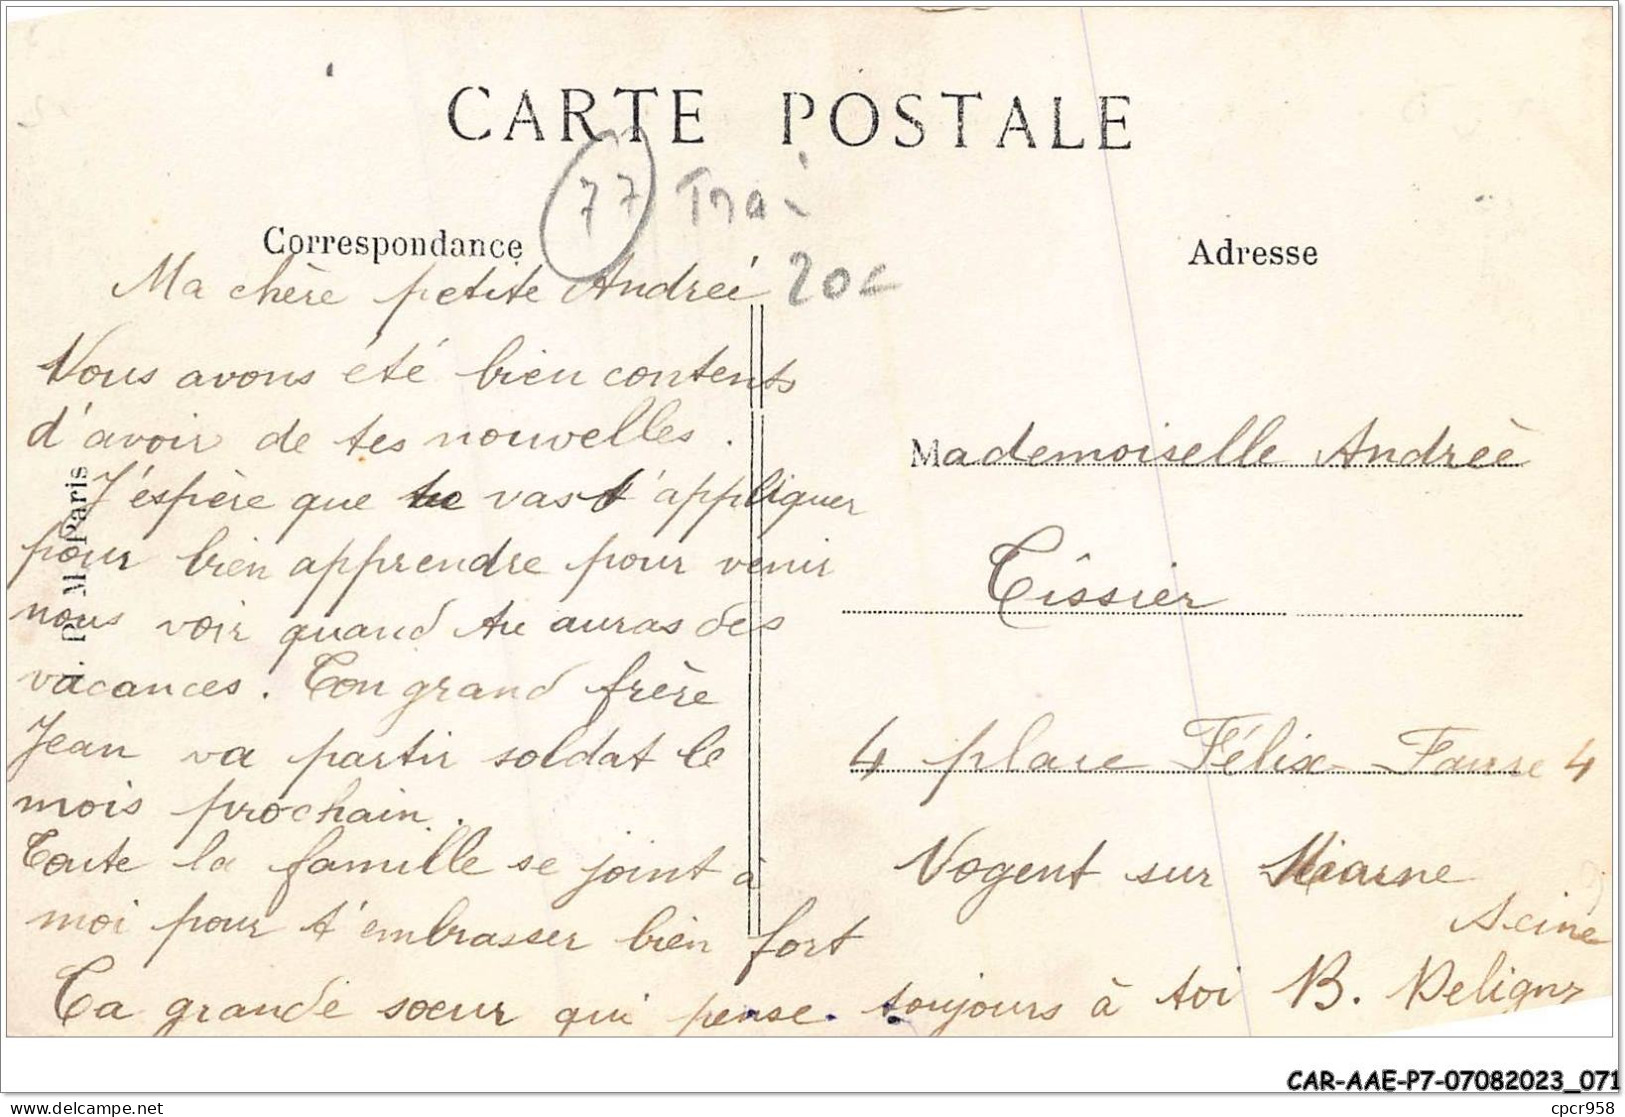 CARTE POSTALE
77
20c
Correspondance
Adresse
Ma chère petite Andreé
Nous avons été bien contents
d'avoir de tes nouvelles.
J'éspère que tu vas t'appliquer
pour bien apprendre pour venir
nous voir quand tu auras des
vacances. Ton grand frère
Jean va partir soldat le
mois prochain.
Toute la famille se joint à
moi pour t'embrasser bien fort
Ta grande soeur qui pense toujours à toi B. Deligny
Paris
Mademoiselle Andreè
Tîssier
4 place Félix Faure 4
Nogent sur Marne
Seine
CAR-AAE-P7-07082023_071
www.delcampe.net
cpcr958